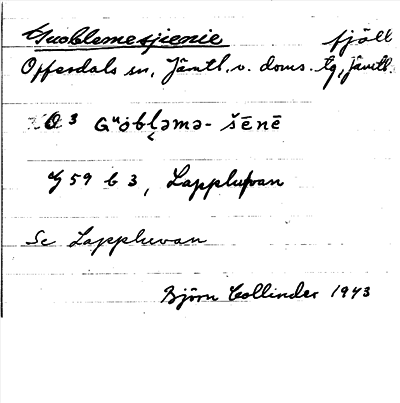 Guoblemesjïenie fjäll
Offerdals sn, Jämtl. v. doms. tg, Jämtl.
O 3 Gᵘobl̥əmə- šēnē
G 59 b 3, Lappluvan
Se Lappluvan
Björn Collinder 1943